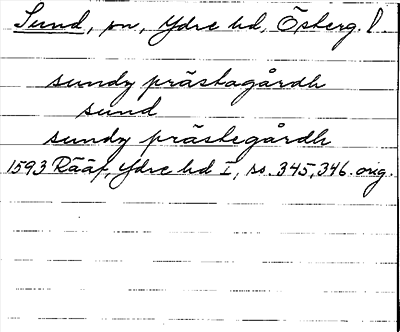 Sund, sn, Ydre hd, Österg. l.
sundz prästagårdh
sund
sundz prästegårdh
1593 Rääf, Ydre hd I, ss. 345, 346. orig.